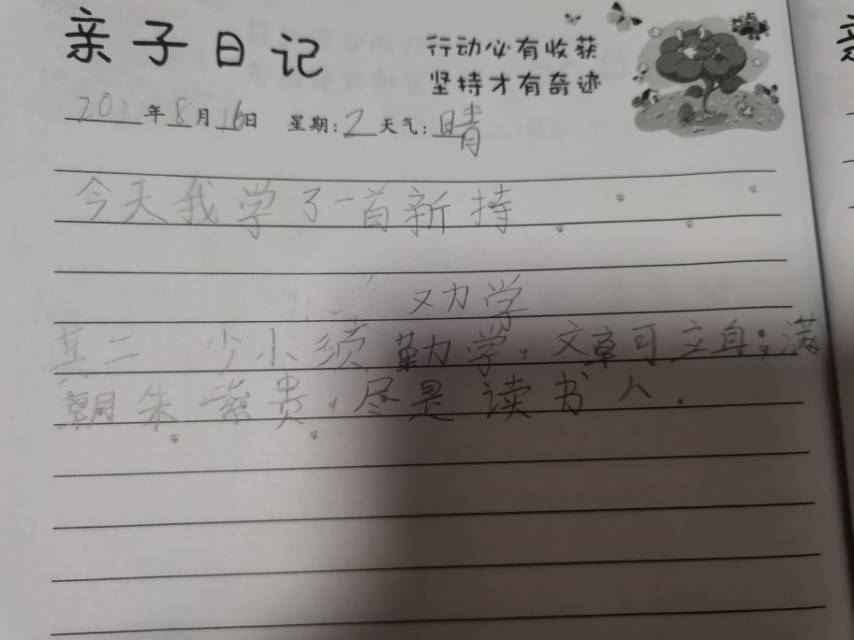 亲子日记
行动必有收获
坚持才有奇迹
年8月16日 星期:2 天气:晴
今天我学了一首新持
劝学
其二 少小须勤学,文章可立身;满
朝朱紫贵,尽是读书人.